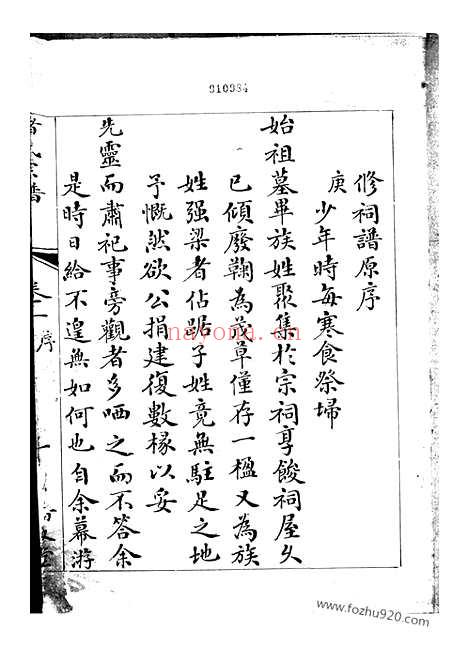 010984
修祠譜原序
庚少年時每寒食祭埽
始祖墓畢族姓聚集於宗祠享餕祠屋久
已傾廢鞠為茂草僅存一楹又為族
姓强梁者佔踞子姓竟無駐足之地
予慨然欲公捐建復數椽以妥
先靈而肅祀事旁觀者多哂之而不答余
是時日給不遑無如何也自余幕游
宗譜
卷一
序
nayona.cn
www.fozhu920.com